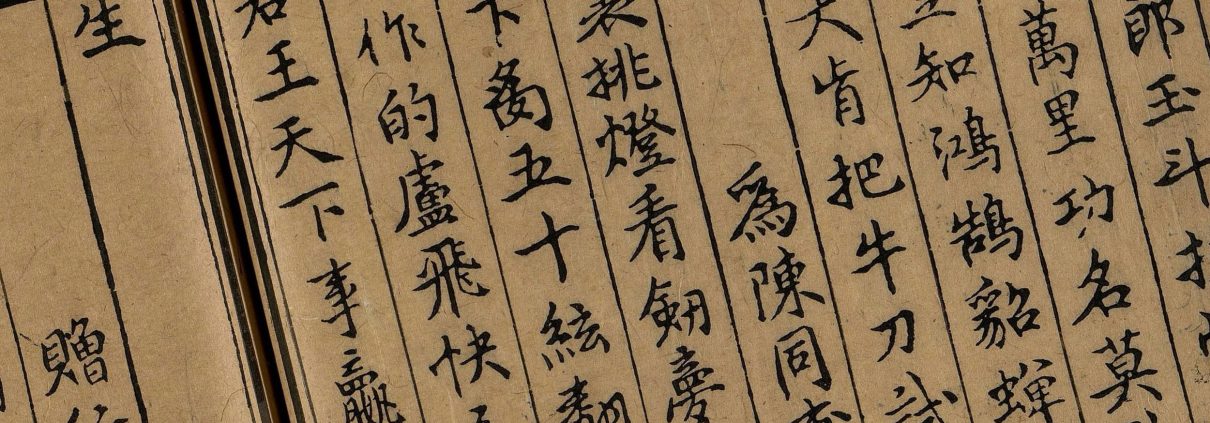 郎玉斗
萬里功名莫
知鴻鵠貂蟬
肯把牛刀試
爲陳同
挑燈看劒夢
下五十絃翻
作的盧飛快
君王天下事贏
生
贈